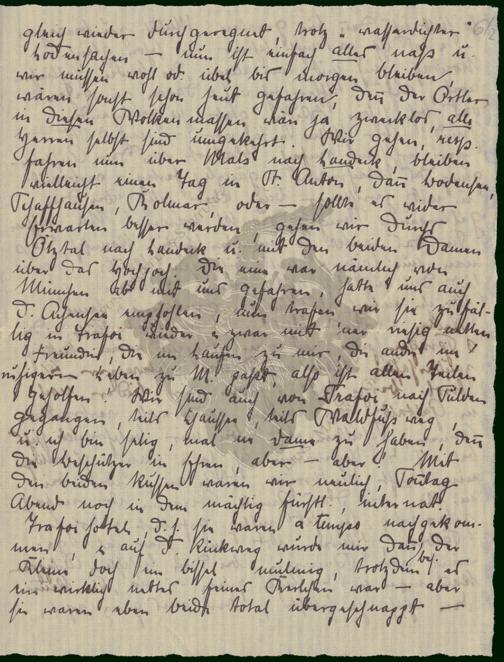 gleich wieder durchgeregnet, trotz „wasserdichter"
Lodensachen — nun ist einfach alles naß u.
wir müssen wohl od. übel bis morgen bleiben,
wären sonst schon heut gefahren, denn der Ortler
in diesen Wolkenmassen wär ja zwecklos, alle
Herren selbst sind umgekehrt. Wir gehen, resp.
fahren nun über Mals nach Landeck, bleiben
vielleicht einen Tag in St. Anton, dann Bodensee,
Schaffhausen, Kolmar, oder — sollte es wider
Erwarten besser werden, gehen wir durchs
Ötztal nach Landeck u. mit den beiden Damen
über das Hochjoch. Die eine war nämlich von
München ab mit uns gefahren, hatte uns auch
d. Achensee empfohlen, nun trafen wir sie zufäl-
lig in Trafoi wieder u. zwar mit 'ner riesig netten
Freundin, die im Laufen zu mir, die andre im
ruhigeren Leben zu M. paßt, also ist allen Teilen
geholfen. Wir sind auch von Trafoi nach Sulden
gegangen, teils Chaussee, teils Waldfußweg,
u. ich bin selig, mal ne Dame zu haben, denn
die Beschützer in Ehren, aber — aber! Mit
den beiden Russen waren wir neulich, Sonntag
Abend noch in dem mächtig fürstl., internat.
Trafoihotel, d. h. sie waren a tempo nachgekom-
men, u. auf d. Rückweg wurde mir dann der
Kleine doch ein bissel mulmig, trotzdem es
ein wirklich nettes feines Kerlchen war — aber
sie waren eben beide total übergeschnappt —